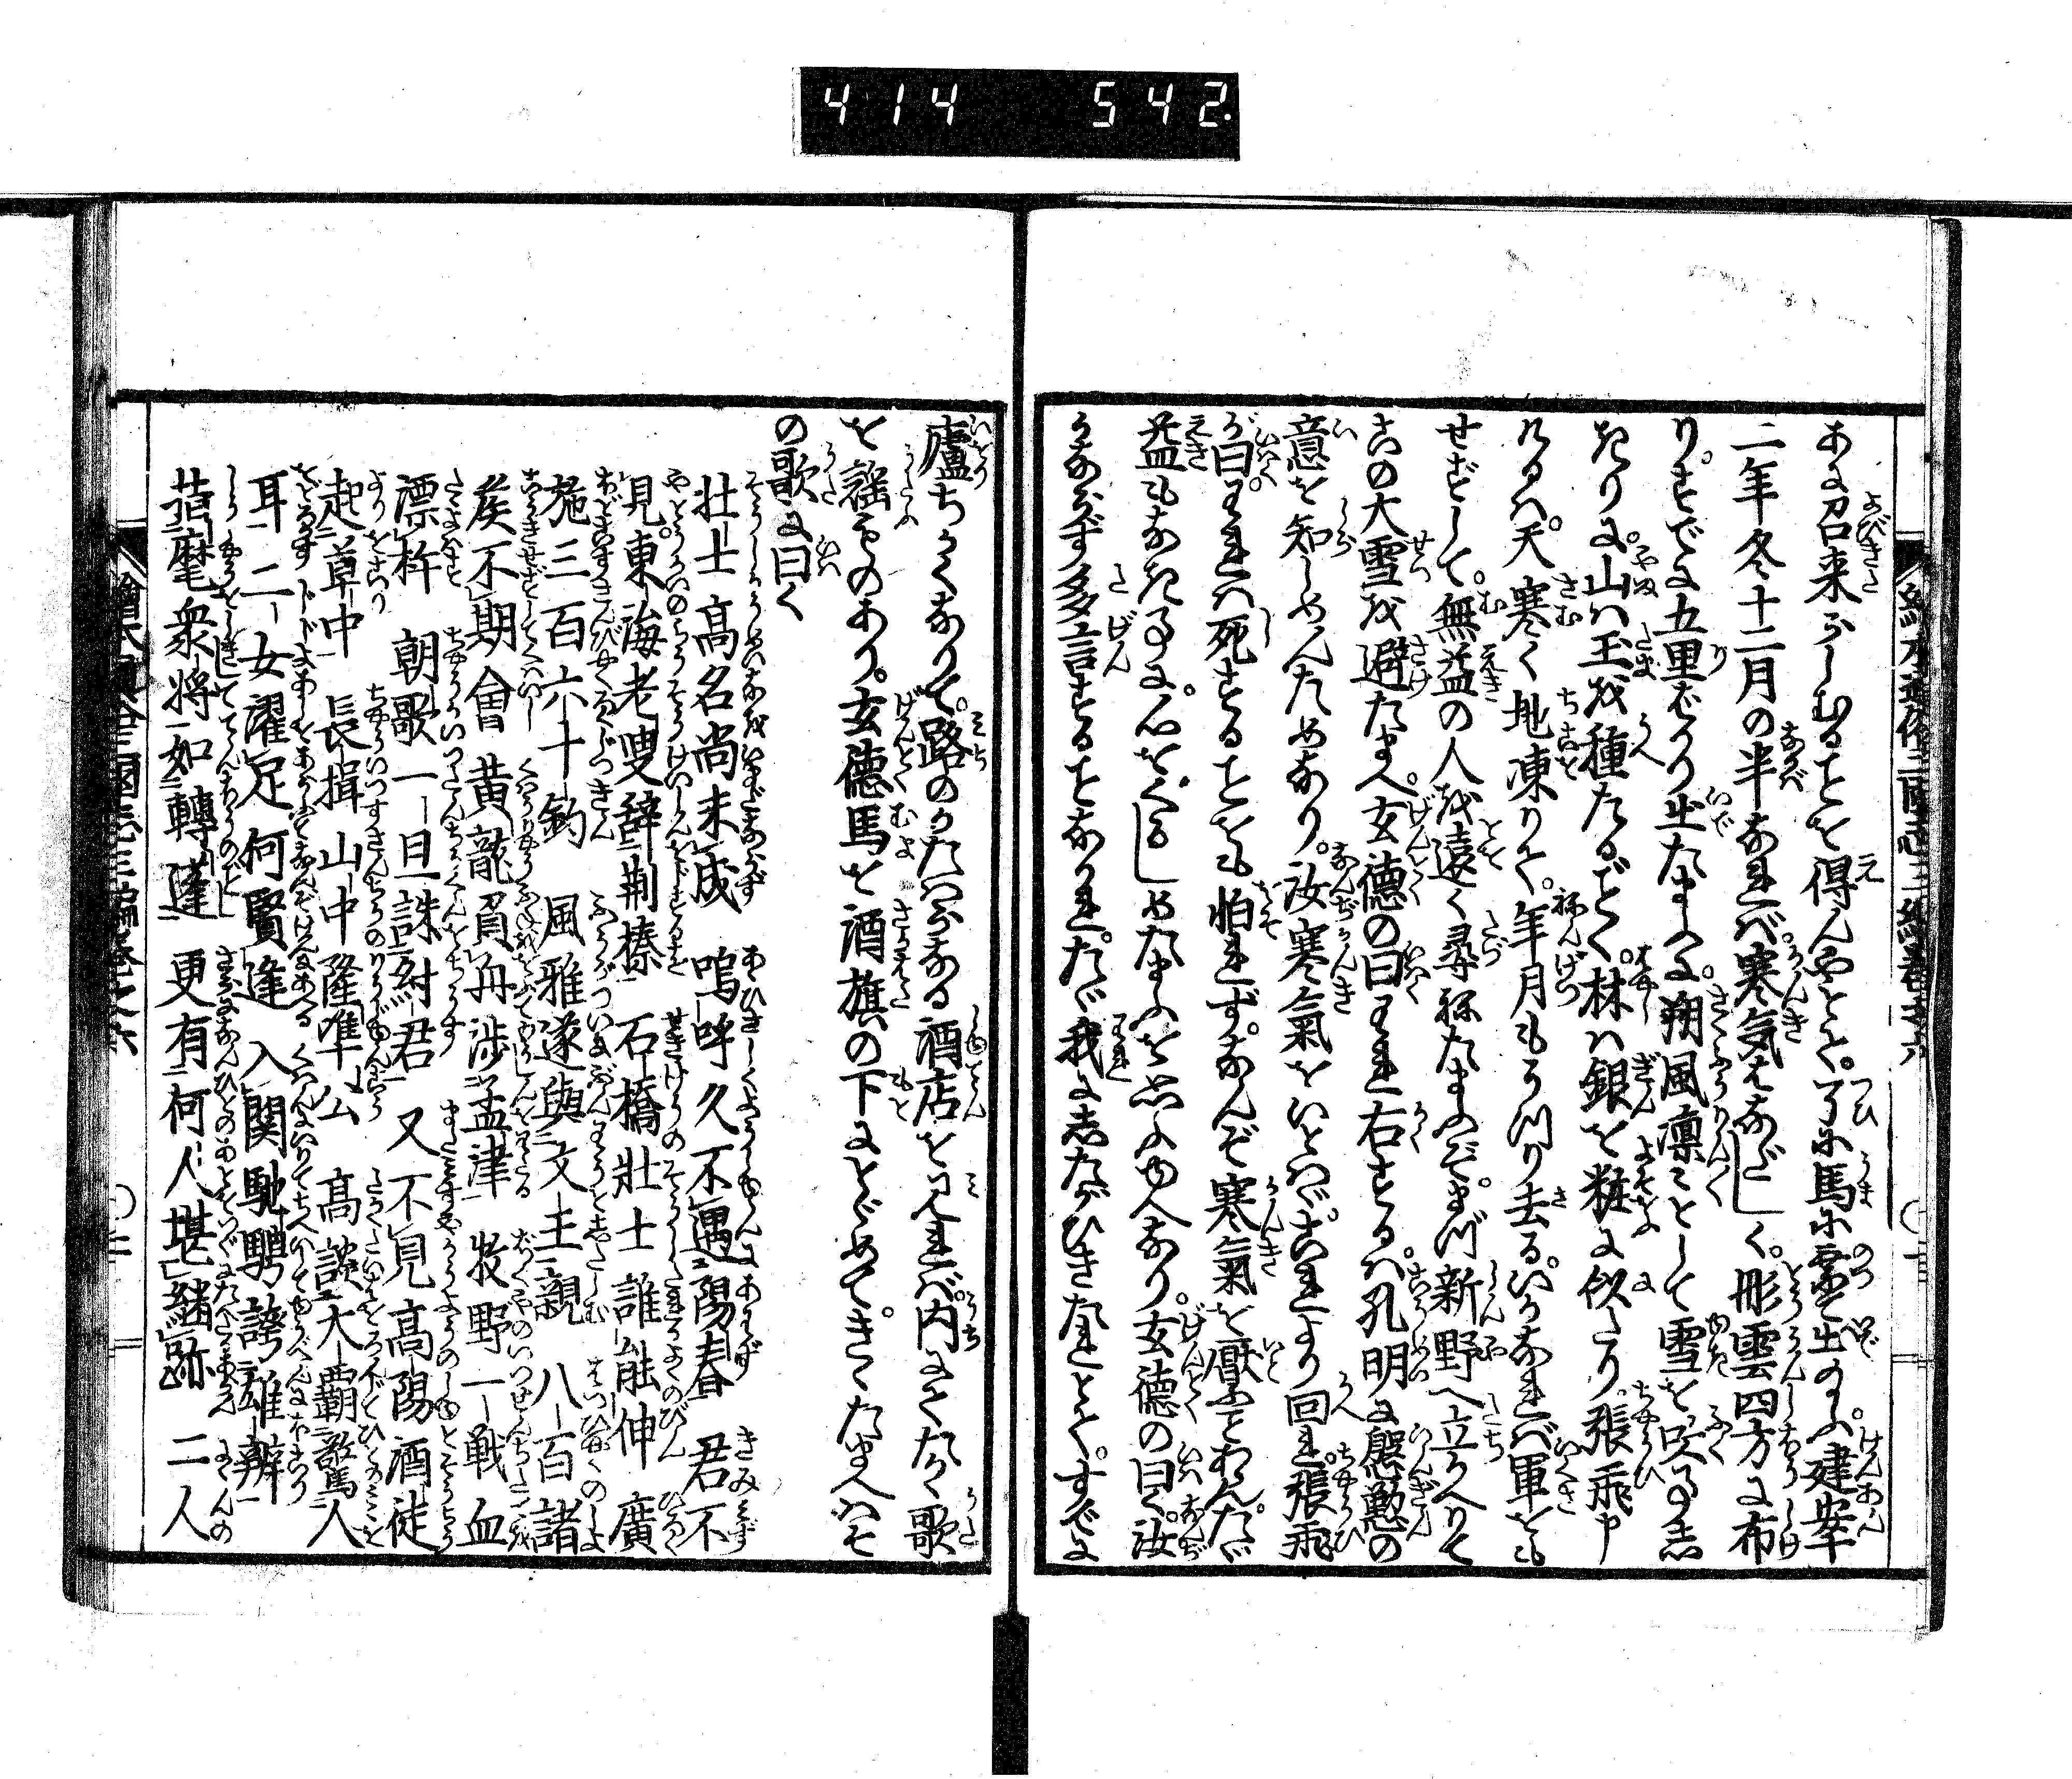 414 542.
あに召来らしむることを得んやとて。了に馬に乗て出のふ。建安
二年冬十二月の半なれば。寒気はなはだしく。彤雲四方に布
り。すでに五里ばかり出たまへば。朔風凛々として雪を吹事し
きりに。山は玉を種たるごとく。林は銀を粧に似たり。張飛申
けるは。天寒く地凍りて。年月もうつり去る。いかなれば軍をも
せずして。無益の人を遠く尋ねたまふぞ。まづ新野へ立かへりて
この大雪を避たまへ。玄徳の曰われ右するは。孔明に慇懃の
意を知らしめんためなり。汝寒氣をいとはゞ。これより回れ。張飛
が曰。われは死することをも怕れず。なんぞ寒氣を厭ことあらんたゞ
益もなき事に。心をくるしめたまふを思ふゆへなり。玄徳の曰。汝
かならず多言することなかれ。たゞ我にしたがひきたれとて。すでに
廬ちかくなりて。路のかたはらなる酒店を見れば。内にてたかく歌
を謡ものあり。玄徳馬を酒旗の下にとゞめてきゝたまへば。そ
の歌に曰く
壮士髙名尚未成 嗚呼久不遇陽春 君不
見東海老叟辭荆榛 石橋壯士誰能伸 廣
施三百六十釣 風雅遂與文王親 八百諸
矦不期會 黄龍負舟渉孟津 牧野一戰血
漂杵 朝歌一旦誅紂君 又不見髙陽酒徒
起草中 長揖山中隆準公 髙談大覇驚人
耳 二女濯足何賢逢 入関馳騁誇雄辨
指麾衆将如轉蓬 更有何人堪繼跡 二人